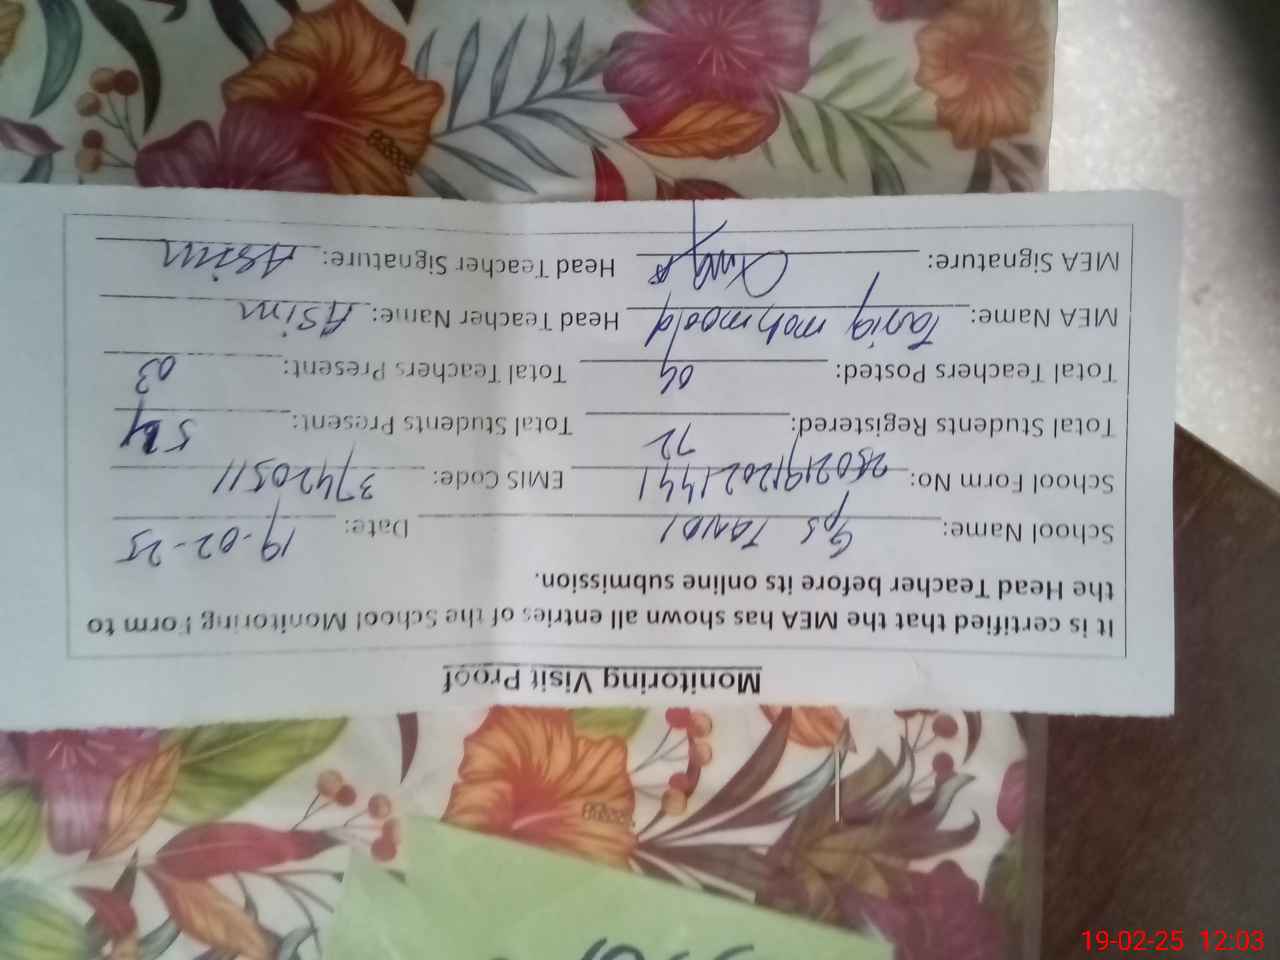 Monitoring Visit Proof
It is certified that the MEA has shown all entries of the School Monitoring Form to
the Head Teacher before its online submission.
School Name: Gps TANOI Date: 19-02-25
School Form No: EMIS Code: 37420511
Total Students Registered: 72 Total Students Present:
Total Teachers Posted: 04 Total Teachers Present: 03
MEA Name: Tariq mahmood Head Teacher Name: ASim
MEA Signature: Head Teacher Signature: ASim
19-02-25 12:03